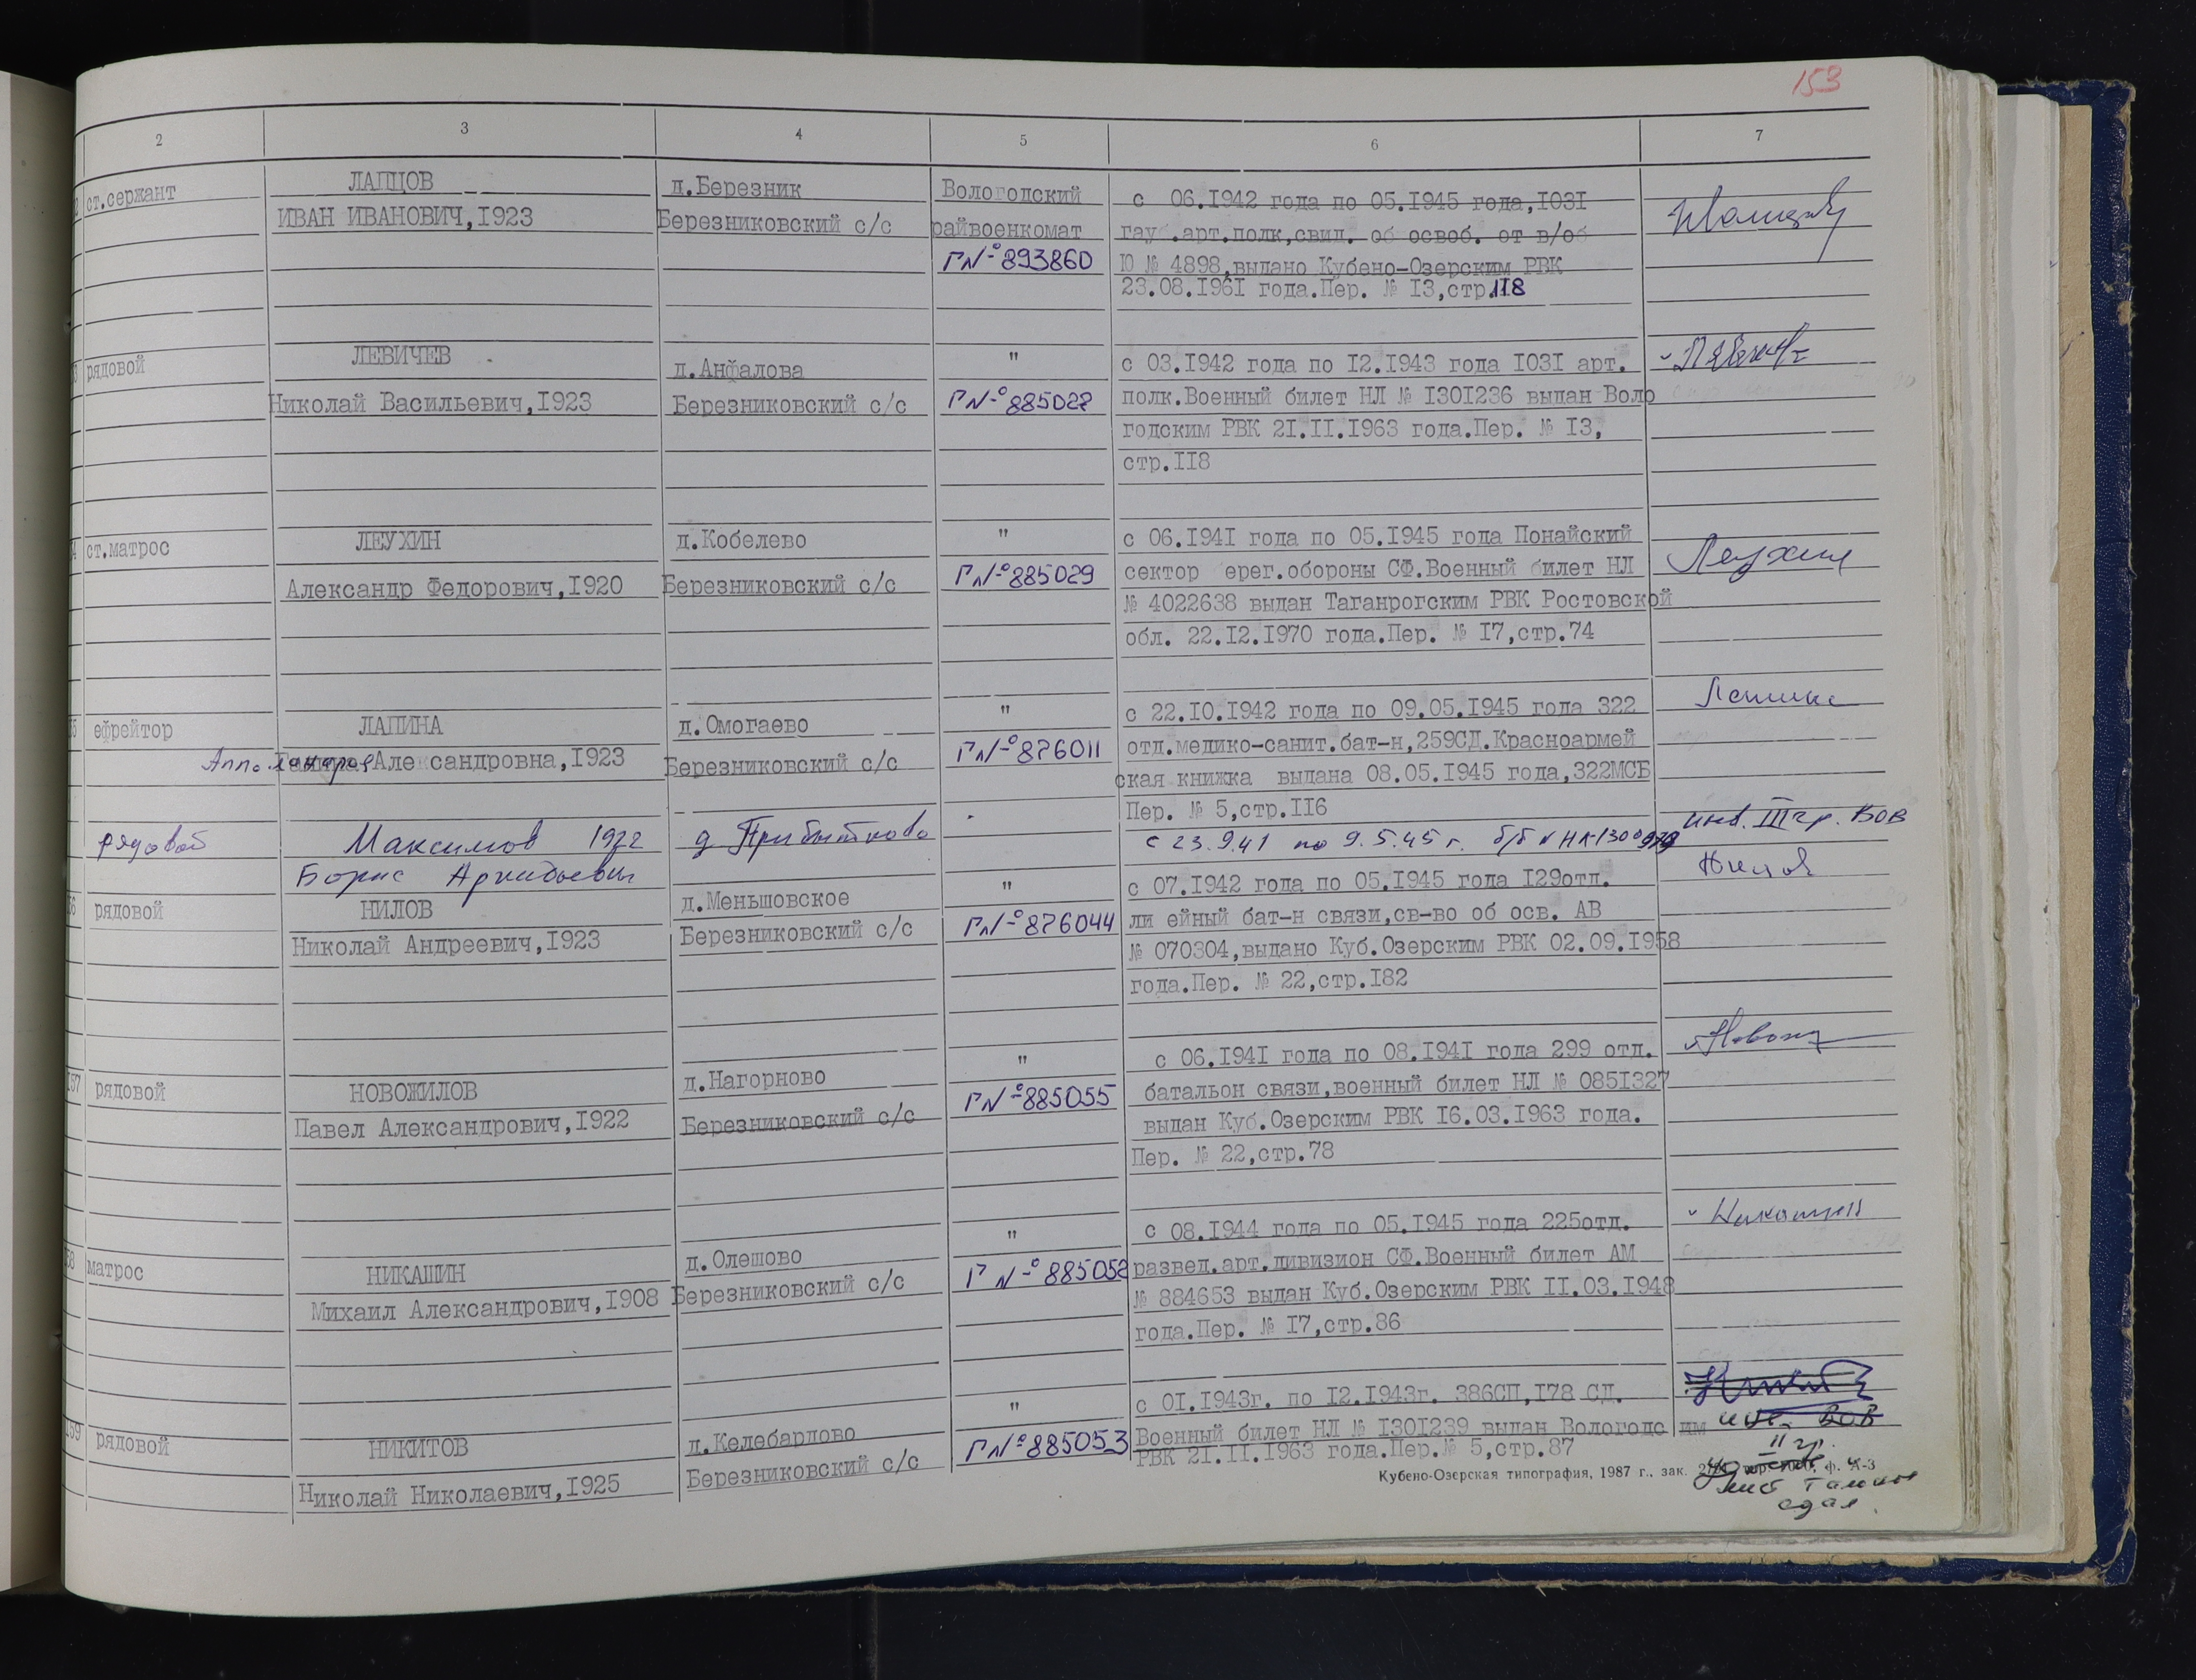 153
2 3 4 5 6 7
ст.сержант ЛАПЦОВ д.Березник Вологодский с 06.1942 года по 05.1945 года,1031
ИВАН ИВАНОВИЧ,1923 Березниковский с/с райвоенкомат гау .арт.полк,свид. об освоб. от в/об
Г№893860 Ю № 4898,выдано Кубено-Озерским РВК
23.08.1961 года.Пер. № 13,стр.118
рядовой ЛЕВИЧЕВ д.Анфалова " с 03.1942 года по 12.1943 года 1031 арт.
Николай Васильевич,1923 Березниковский с/с полк.Военный билет НЛ № 1301236 выдан Воло
годским РВК 21.11.1963 года.Пер. № 13,
стр.118
ст.матрос ЛЕУХИН д.Кобелево " с 06.1941 года по 05.1945 года Понайский Леухин
Александр Федорович,1920 Березниковский с/с Г№885029 сектор ерег.обороны СФ.Военный билет НЛ
№ 4022638 выдан Таганрогским РВК Ростовской
обл. 22.12.1970 года.Пер. № 17,стр.74
ефрейтор ЛАПИНА д.Омогаево " с 22.10.1942 года по 09.05.1945 года 322 Лапина
Але сандровна,1923 Березниковский с/с Г№876011 отд.медико-санит.бат-н,259СД.Красноармей
ская книжка выдана 08.05.1945 года,322МСБ
Пер. № 5,стр.116
рядовой Максимов 1922 д Прибытково с 23.9.41 по 9.5.45 г. инв. III гр. ВОВ
Борис Аркадьевич
рядовой НИЛОВ д.Меньшовское " с 07.1942 года по 05.1945 года 129отд. Нилов
Николай Андреевич,1923 Березниковский с/с Г№876044 ли ейный бат-н связи,св-во об осв. АВ
№ 070304,выдано Куб.Озерским РВК 02.09.1958
года.Пер. № 22,стр.182
рядовой НОВОЖИЛОВ д.Нагорново " с 06.1941 года по 08.1941 года 299 отд.
Павел Александрович,1922 Березниковский с/с Г№885055 батальон связи,военный билет НЛ № 0851327
выдан Куб.Озерским РВК 16.03.1963 года.
Пер. № 22,стр.78
матрос НИКАШИН д.Олешово " с 08.1944 года по 05.1945 года 225отд. Никашин
Михаил Александрович,1908 Березниковский с/с Г №885052 развед.арт.дивизион СФ.Военный билет АМ
№ 884653 выдан Куб.Озерским РВК 11.03.1948
года.Пер. № 17,стр.86
159 рядовой НИКИТОВ д.Келебардово " с 01.1943г. по 12.1943г. 386СП,178 СД.
Николай Николаевич,1925 Березниковский с/с Г№885053 Военный билет НЛ № 1301239 выдан Вологодс им инв. ВОВ
РВК 21.11.1963 года.Пер.№ 5,стр.87 II гр.
Кубено-Озерская типография, 1987 г., зак. ф. А-3
сдал.